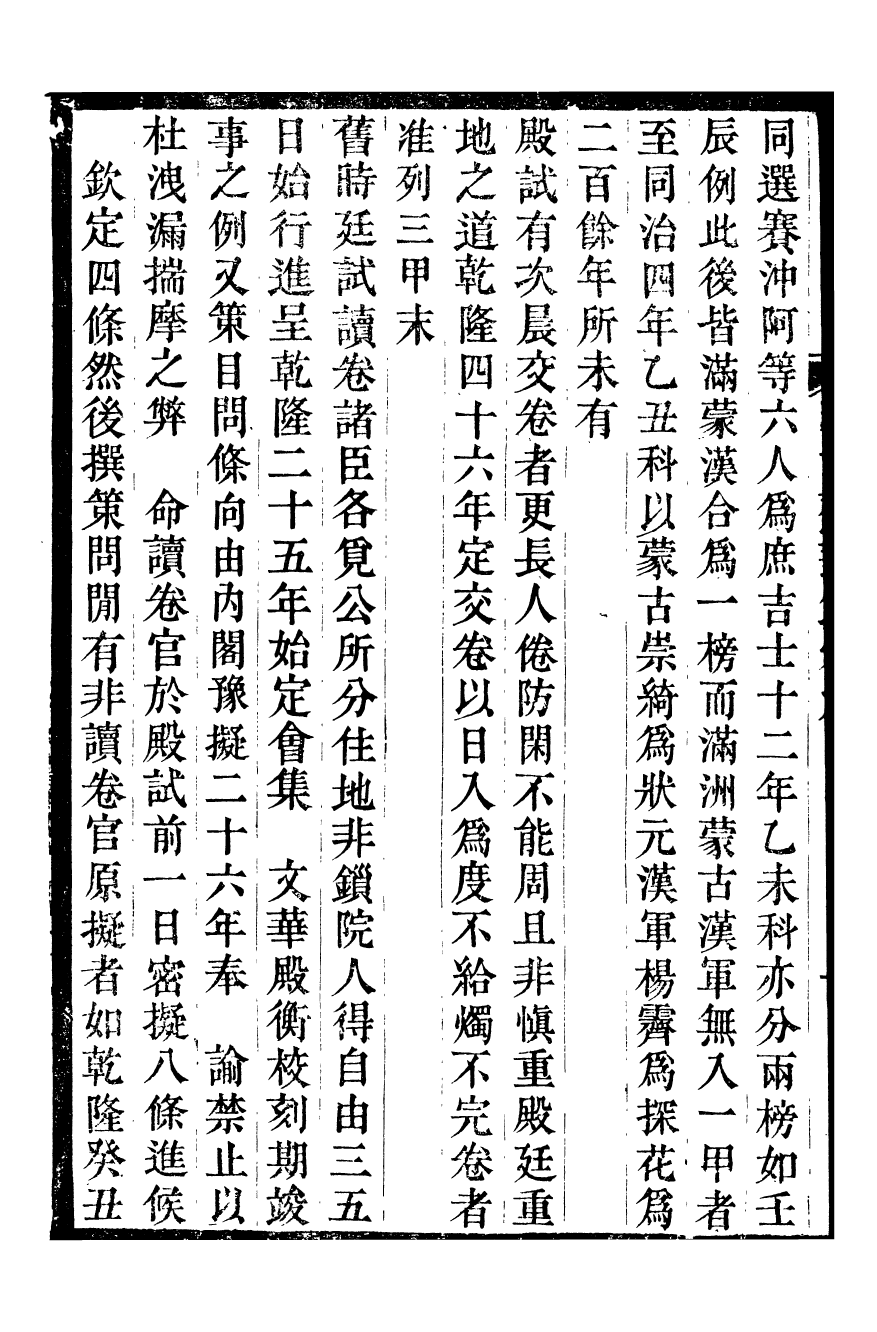 同選賽沖阿等六人爲庶吉士十二年乙未科亦分兩榜如壬
辰例此後皆滿蒙漢合爲一榜而滿洲蒙古漢軍無入一甲者
至同治四年乙丑科以蒙古崇綺爲狀元漢軍楊霽爲探花爲
二百餘年所未有
殿試有次晨交卷者更長人倦防閑不能周且非愼重殿廷重
地之道乾隆四十六年定交卷以日入爲度不給燭不完卷者
准列三甲末
舊時廷試讀卷諸臣各覓公所分住地非鎖院人得自由三五
日始行進呈乾隆二十五年始定會集　文華殿衡校刻期竣
事之例又策目問條向由內閣豫擬二十六年奉　諭禁止以
杜洩漏揣摩之弊　命讀卷官於殿試前一日密擬八條進候
欽定四條然後撰策問閒有非讀卷官原擬者如乾隆癸丑